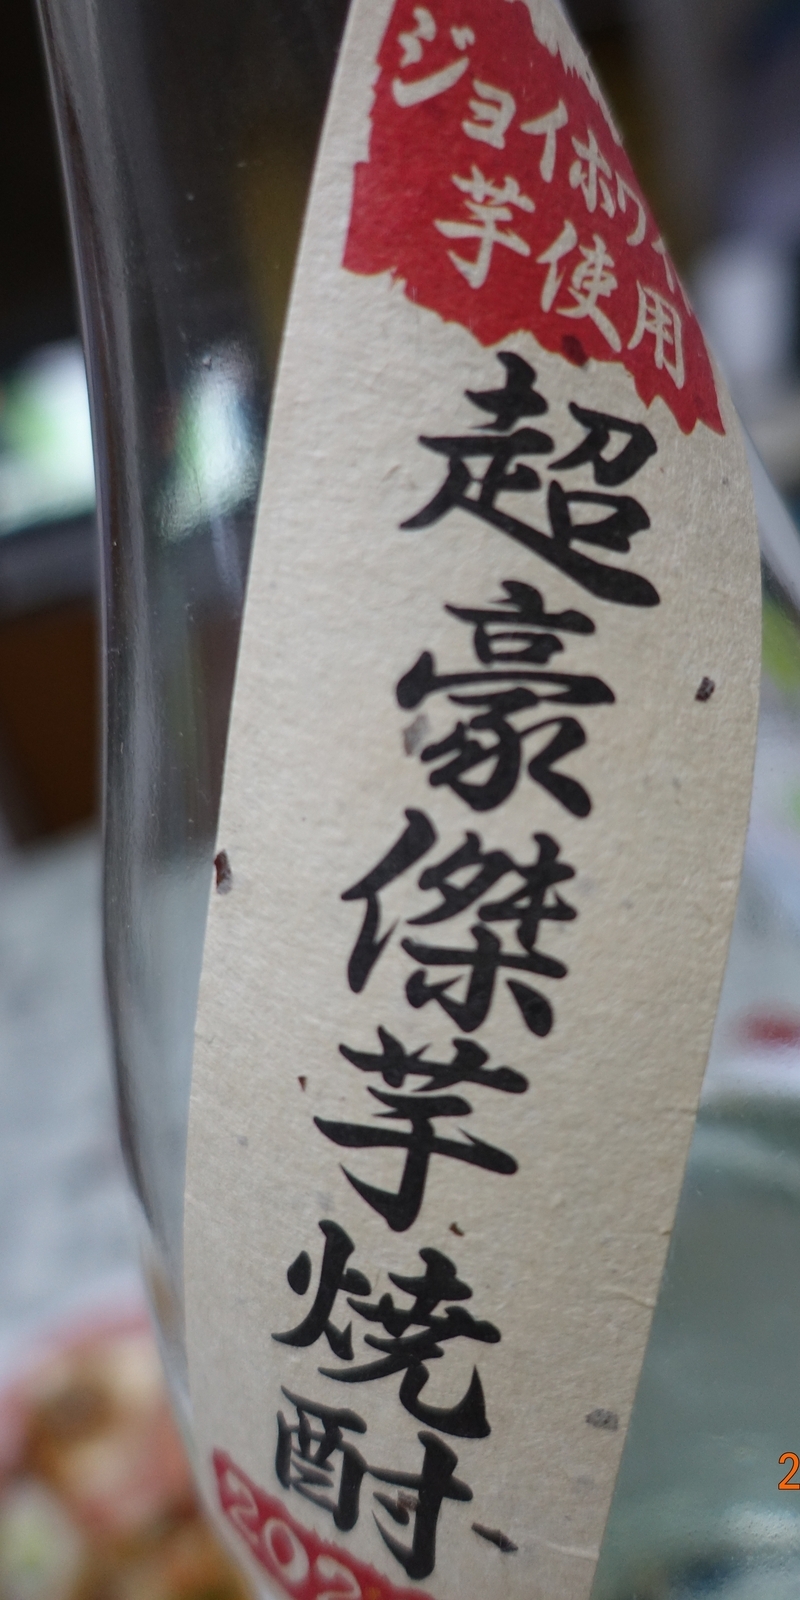 ジョイホワイ
芋使用
超豪傑芋焼酎
202
2